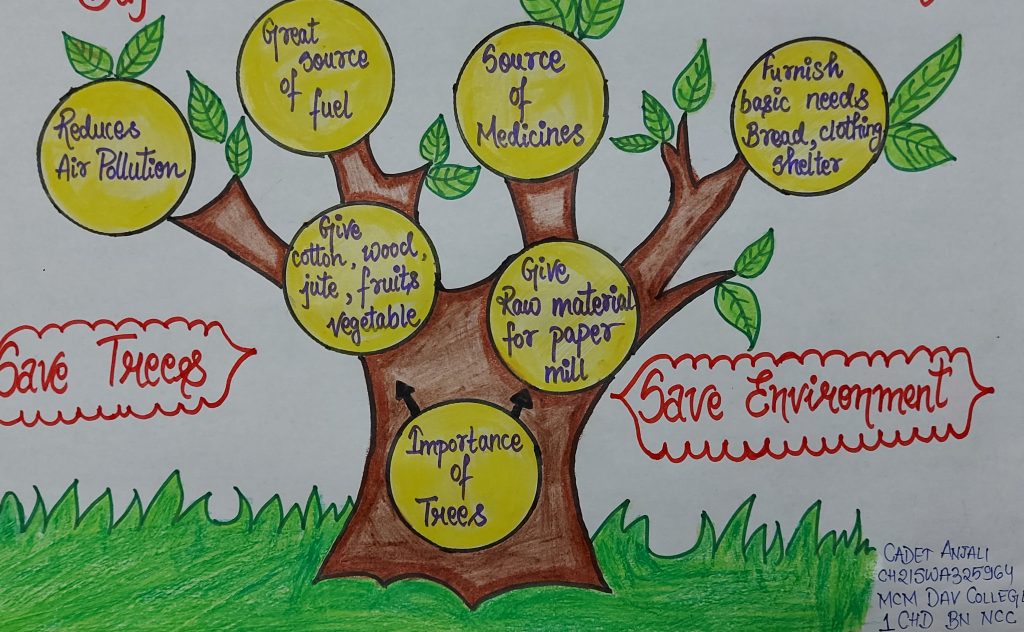 Great
source
of
fuel
Source
of
Medicines
Furnish
basic needs
Bread, clothing
shelter
Reduces
Air Pollution
Give
cotton, wood,
jute, fruits
vegetable
Give
Raw material
for paper
mill
Save Trees
Save Environment
Importance
of
Trees
CADET ANJALI
CH21SWA325964
MCM DAV COLLEGE
1 CHD BN NCC